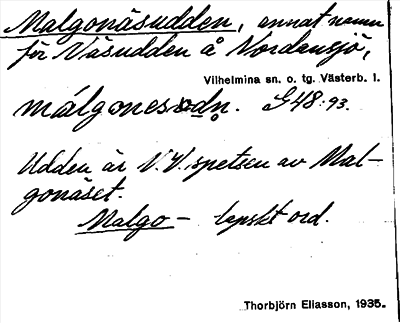 Malgonäsudden, annat namn
för Väsudden å Nordansjö,
Vilhelmina sn. o. tg. Västerb. l.
G48.93.
Udden är V.V.spetsen av Mal-
gonäset.
Malgo - lapskt ord.
Thorbjörn Eliasson, 1935.